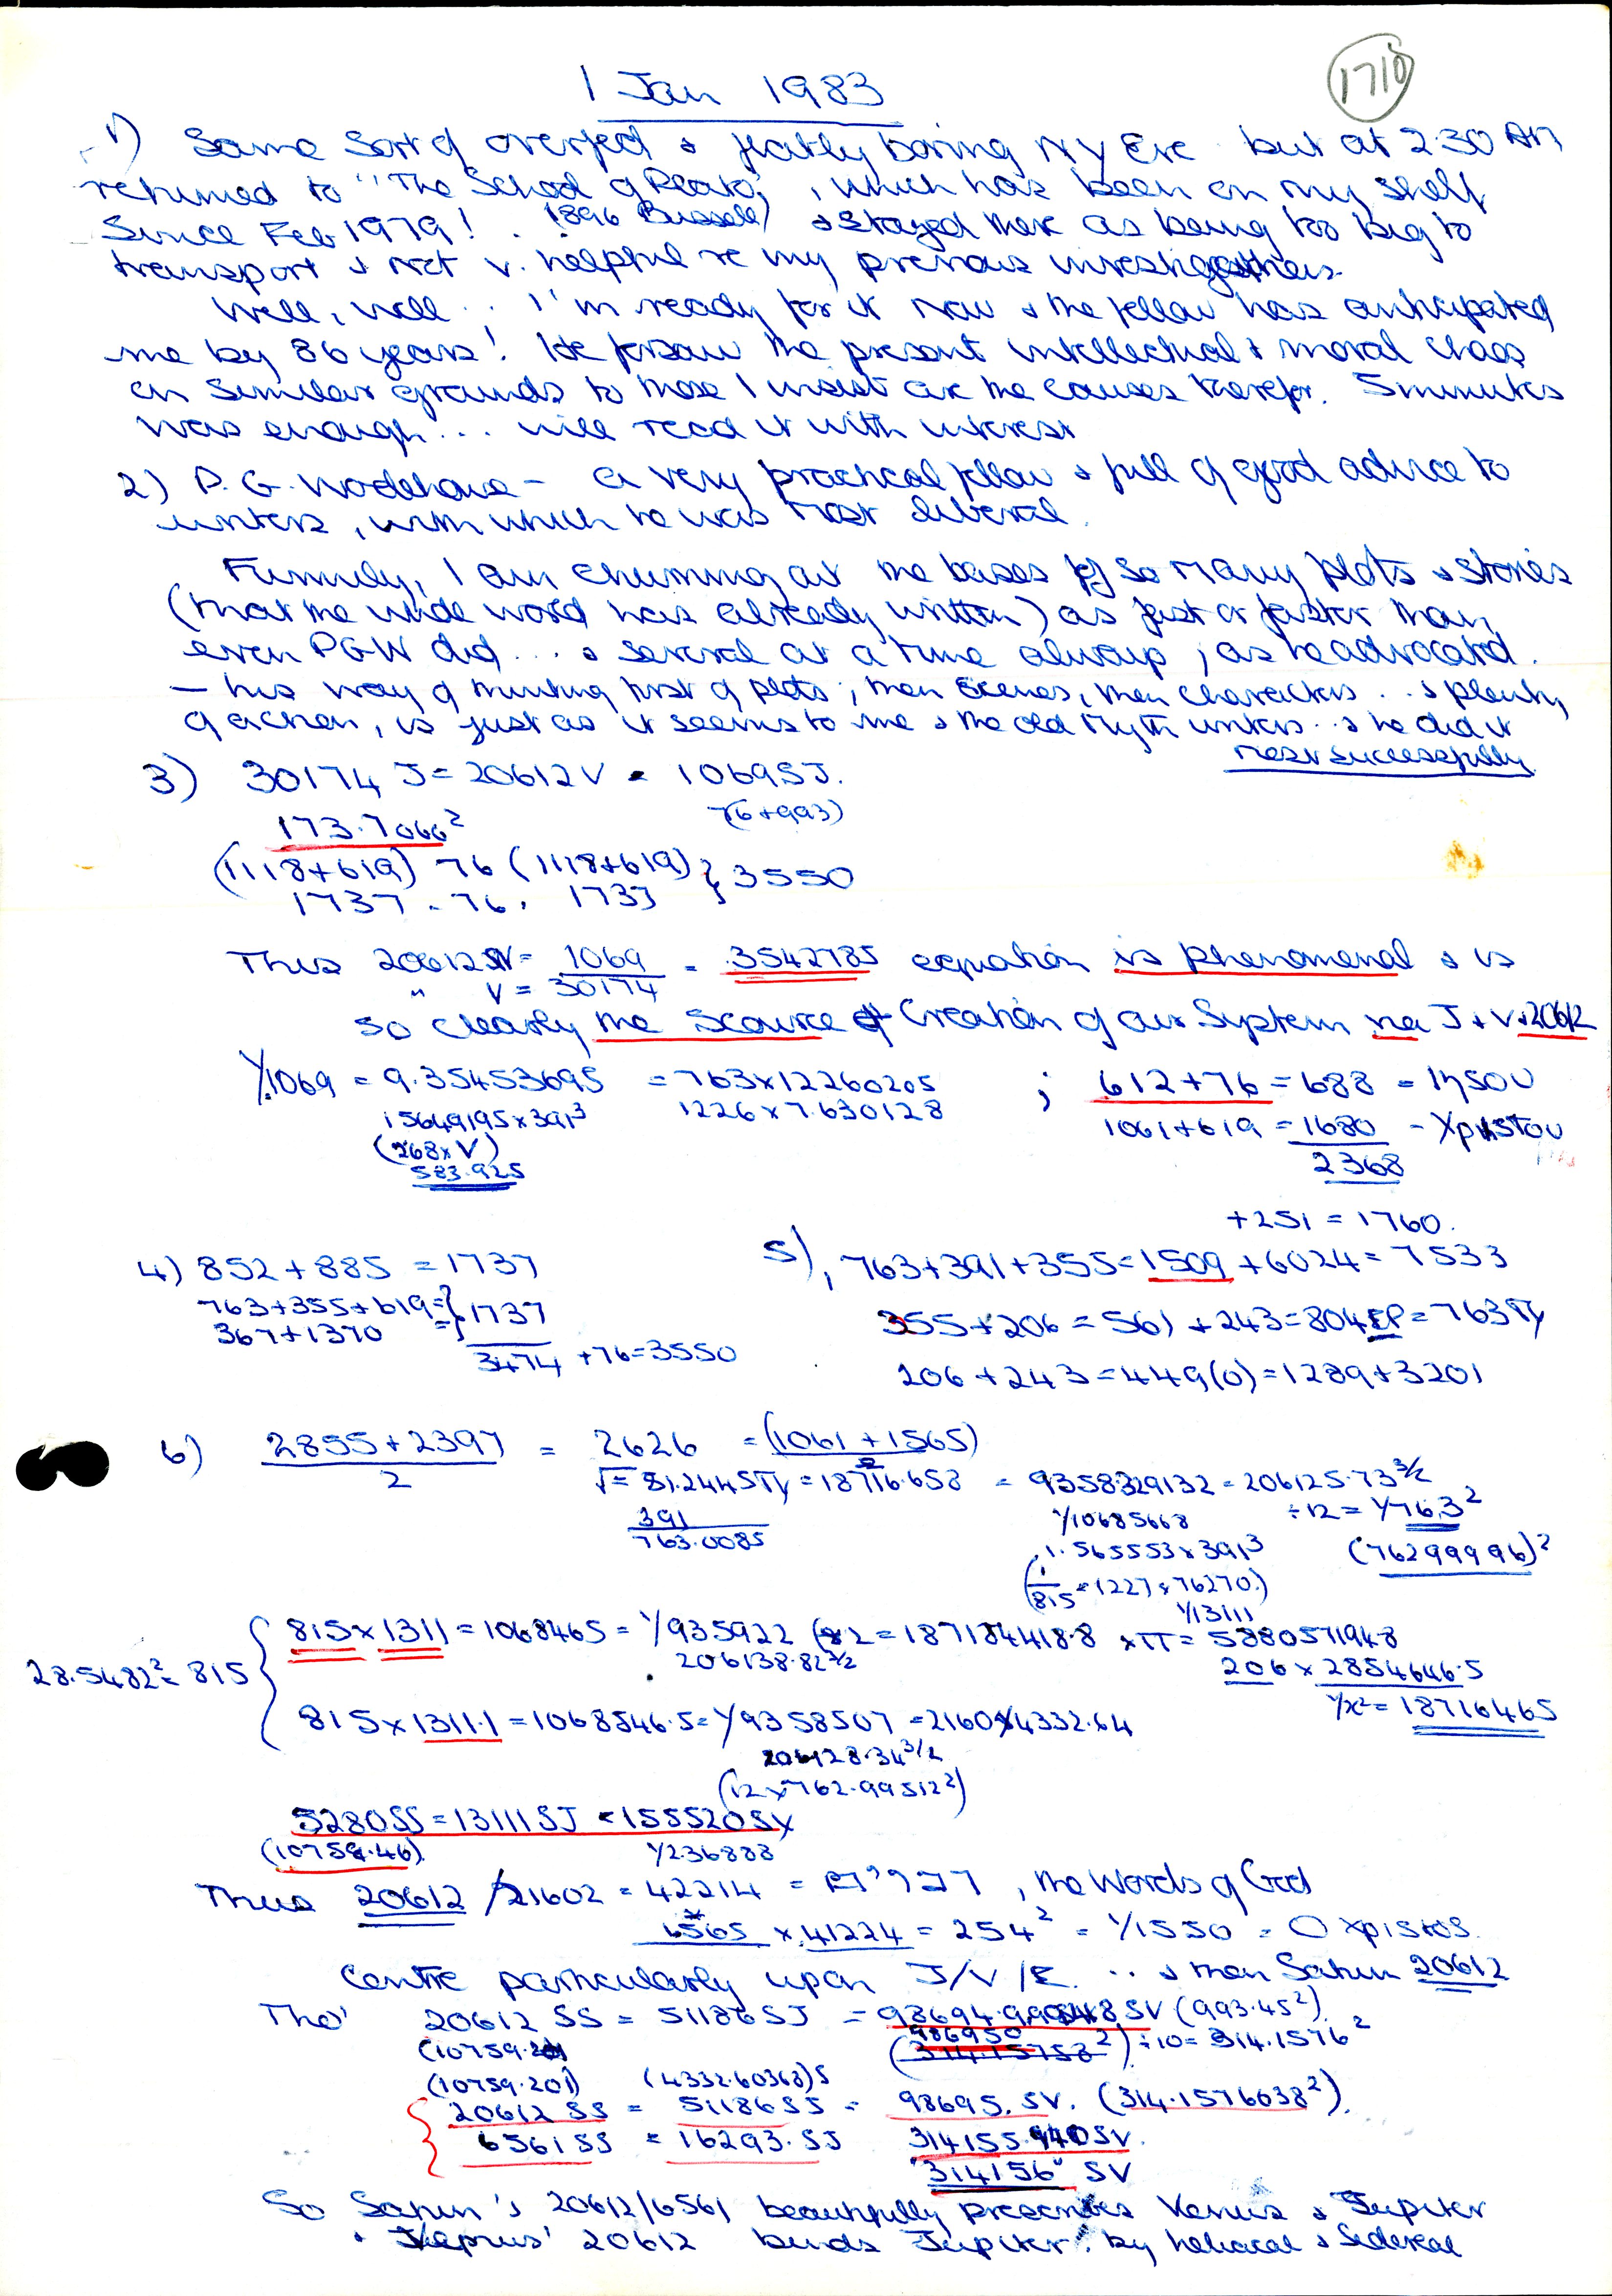 1 Jan 1983
1710
1) Same sort of overfed & flatly boring NY Eve but at 2.30 AM
returned to "The School of Plato", which has been on my shelf
Since Feb 1979! (1896 Bussell) & stayed there as being too big to
transport & not v. helpful re my previous investigations.
Well, well... I'm ready for it now & the fellow has anticipated
me by 86 years! He forsaw the present intellectual & moral chaos
on similar grounds to those I insist are the causes therefor. 5 minutes
was enough... will read it with interest
2) P.G. Wodehouse - a very practical fellow & full of good advice to
writers, with which he was most liberal.
Funnily, I am churning out the bases of so many plots & stories
(that the wide world has already written) as fast or faster than
even PGW did... & several at a time always, as he advocated.
- his way of thinking first of plots, then scenes, then characters... & plenty
of action, is just as it seems to me & the old Myth writers... & he did it
most successfully
3) 30174 J = 20612 V = 1069 SJ.
(76+993)
173.7066²
(1118+619) 76 (1118+619) } 3550
1737 . 76 . 1737
Thus 20612 = 1069 = 3542785 equation is phenomenal & is
" V = 30174
so clearly the Scource of Creation of our System via J & V & 20612
1/1069 = 9.35453695 = 763x12260205 ; 612+76 = 688 = Ιησου
15649195x391³ 1226x7.630128 1061+619 = 1680 - Χριστου
(268xV) 2368
583.925
+251 = 1760.
4) 852+885 = 1737
5) 763+391+355=1509+6024=7533
763+355+619= } 1737
367+1370 =
355+206=561+243=804 = 763
3474 +76=3550
206+243=449(0)=1289+3201
6) 2855+2397 = 2626 = (1061+1565)
2
√= 51.244 = 18716.658 = 9358329132 = 206125.73^3/2
391 1/10685668 ÷12 = 1/763²
763.0085 1.565553x391³ (76299996)²
(1/815 = 1227 x 76270)
1/13111
28.5482² = 815 { 815x1311 = 1068465 = 1/935922 (x2 = 1871844188 xπ = 5880571948
206138.82^3/2 206 x 2854646.5
1/x² = 18716465
815x1311.1 = 1068546.5 = 1/9358507 = 2160x4332.64
206128.34^3/2
(12x762.99512²)
5280SS = 13111SJ = 155520SV
(10759.46) 1/236888
Thus 20612/21602 = 42214 = , the Words of God
1565 x 41224 = 254² = 1/1550 = Ο Χριστος
Centre particularly upon J/V/E... & then Saturn 20612
Tho' 20612 SS = 51186 SJ = 98694. SV (993.45²)
(10759.201) 986950 ÷10 = 314.1576²
(314.15758²)
(10759.201) (4332.60368)S
20612 SS = 51186 SJ = 98695. SV. (314.1576038²).
6561 SS = 16293. SJ 314155.940SV.
"314156" SV
So Saturn's 20612/6561 beautifully prescribes Venus & Jupiter
& Venus' 20612 binds Jupiter: by heliacal & Sidereal